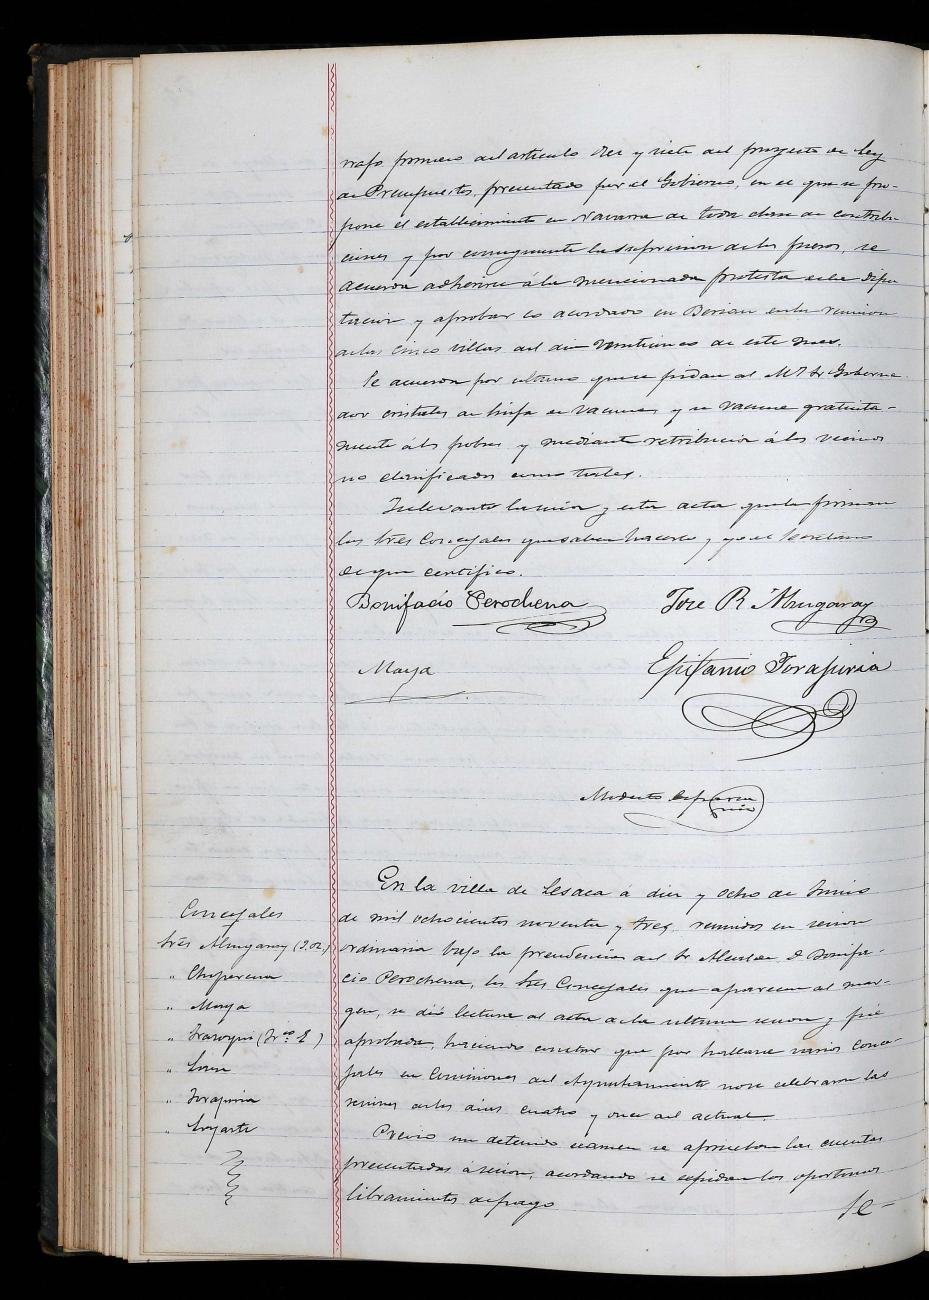 rrafo primero del artículo diez y siete del proyecto de Ley
de Presupuestos, presentado por el Gobierno, en el que se pro-
pone el establecimiento en Navarra de toda clase de contribu-
ciones y por consiguiente la supresion de los fueros, se
acuerda adherirse á la mencionada protesta de la Dipu
tacion y aprobar lo acordado en en la reunion
de las cinco villas del dia veintiuno de este mes.
Se acuerda por ultimo que se pidan al Sr Goberna
dor cristales de linfa de vacuna y se vacune gratuita-
mente á los pobres y mediante retribucion á los vecinos
no clasificados como tales.
la sesion y esta acta que la firman
los Sres Concejales que saben hacerlo y yo el Secretario
de que certifico.
Bonifacio Perochena Jose R Almgaray
Maya Epifanio Torapuria
Modesto
En la villa de Lesaca á diez y ocho de Junio
de mil ochocientos noventa y tres, reunidos en sesion
ordinaria bajo la presidencia del Sr Alcalde D Bonifa-
cio Perochena, los Sres Concejales que aparecen al mar-
gen, se dió lectura al acta de la ultima sesion y fué
aprobada, haciendo constar que por hallarse varios Conce-
jales en Comisiones del Ayuntamiento no se celebraron las
sesiones de los dias cuatro y once del actual.
Previo un detenido examen se aprueban las cuentas
presentadas á sesion, acordando se expidan los oportunos
libramientos de pago
Se-
Concejales
Sres Almgaray
" Chiperena
" Maya
"
"
" Torapuria
" Loyarte